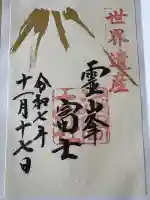 世界遺産
霊峰
富士
令和七年
十一月十七日